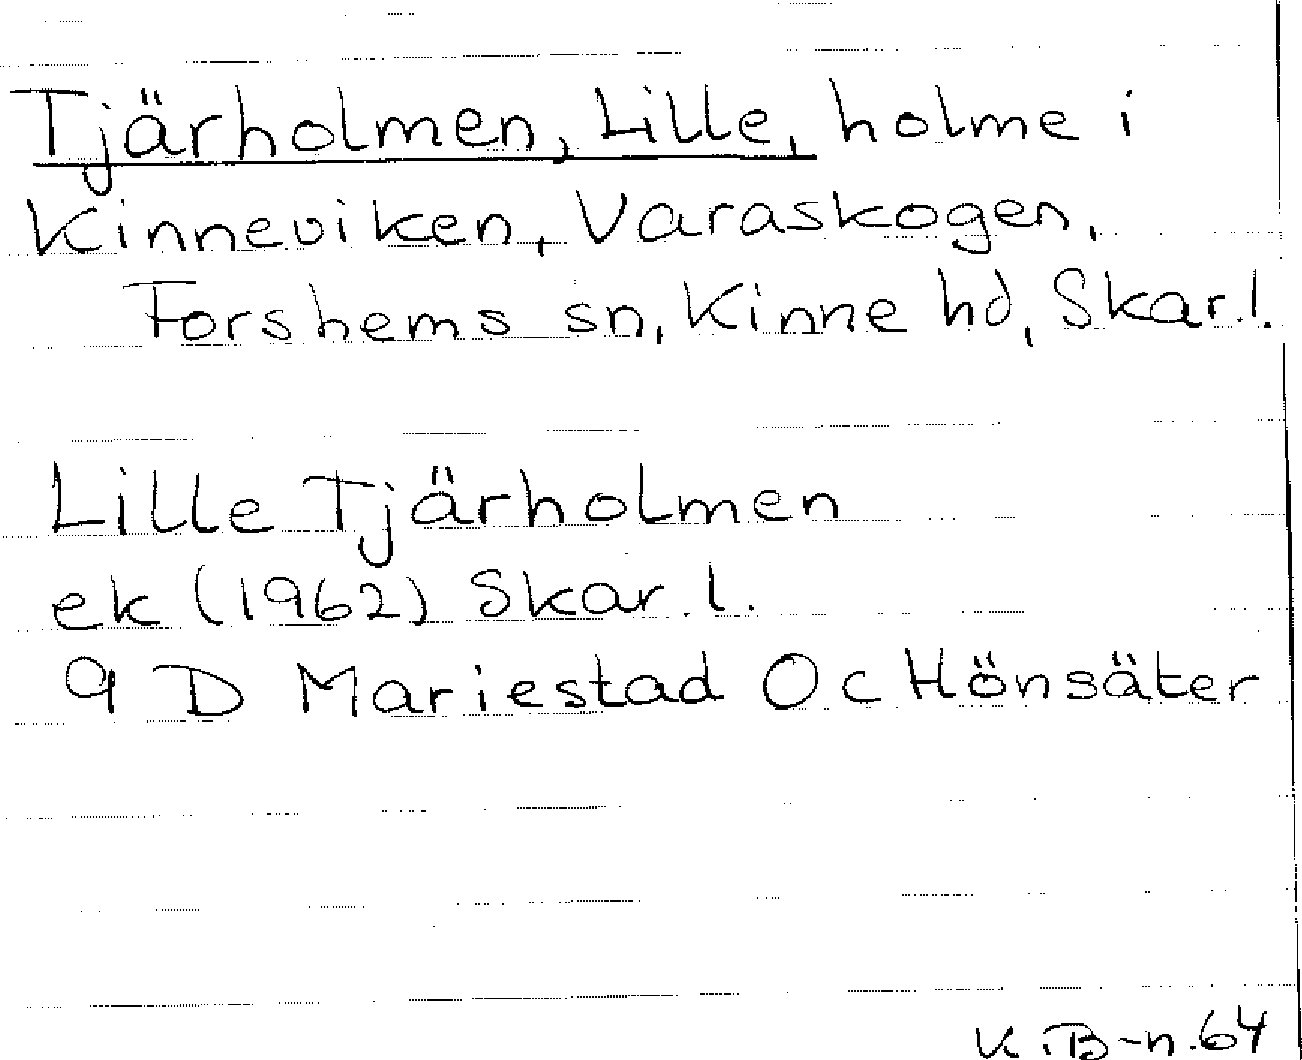 Tjärholmen, Lille, holme i
Kinneviken, Varaskogen,
Forshems sn, Kinne hd, Skar.l.
Lille Tjärholmen
ek (1962) Skar.l.
9 D Mariestad Oc Hönsäter
K.B-n.64